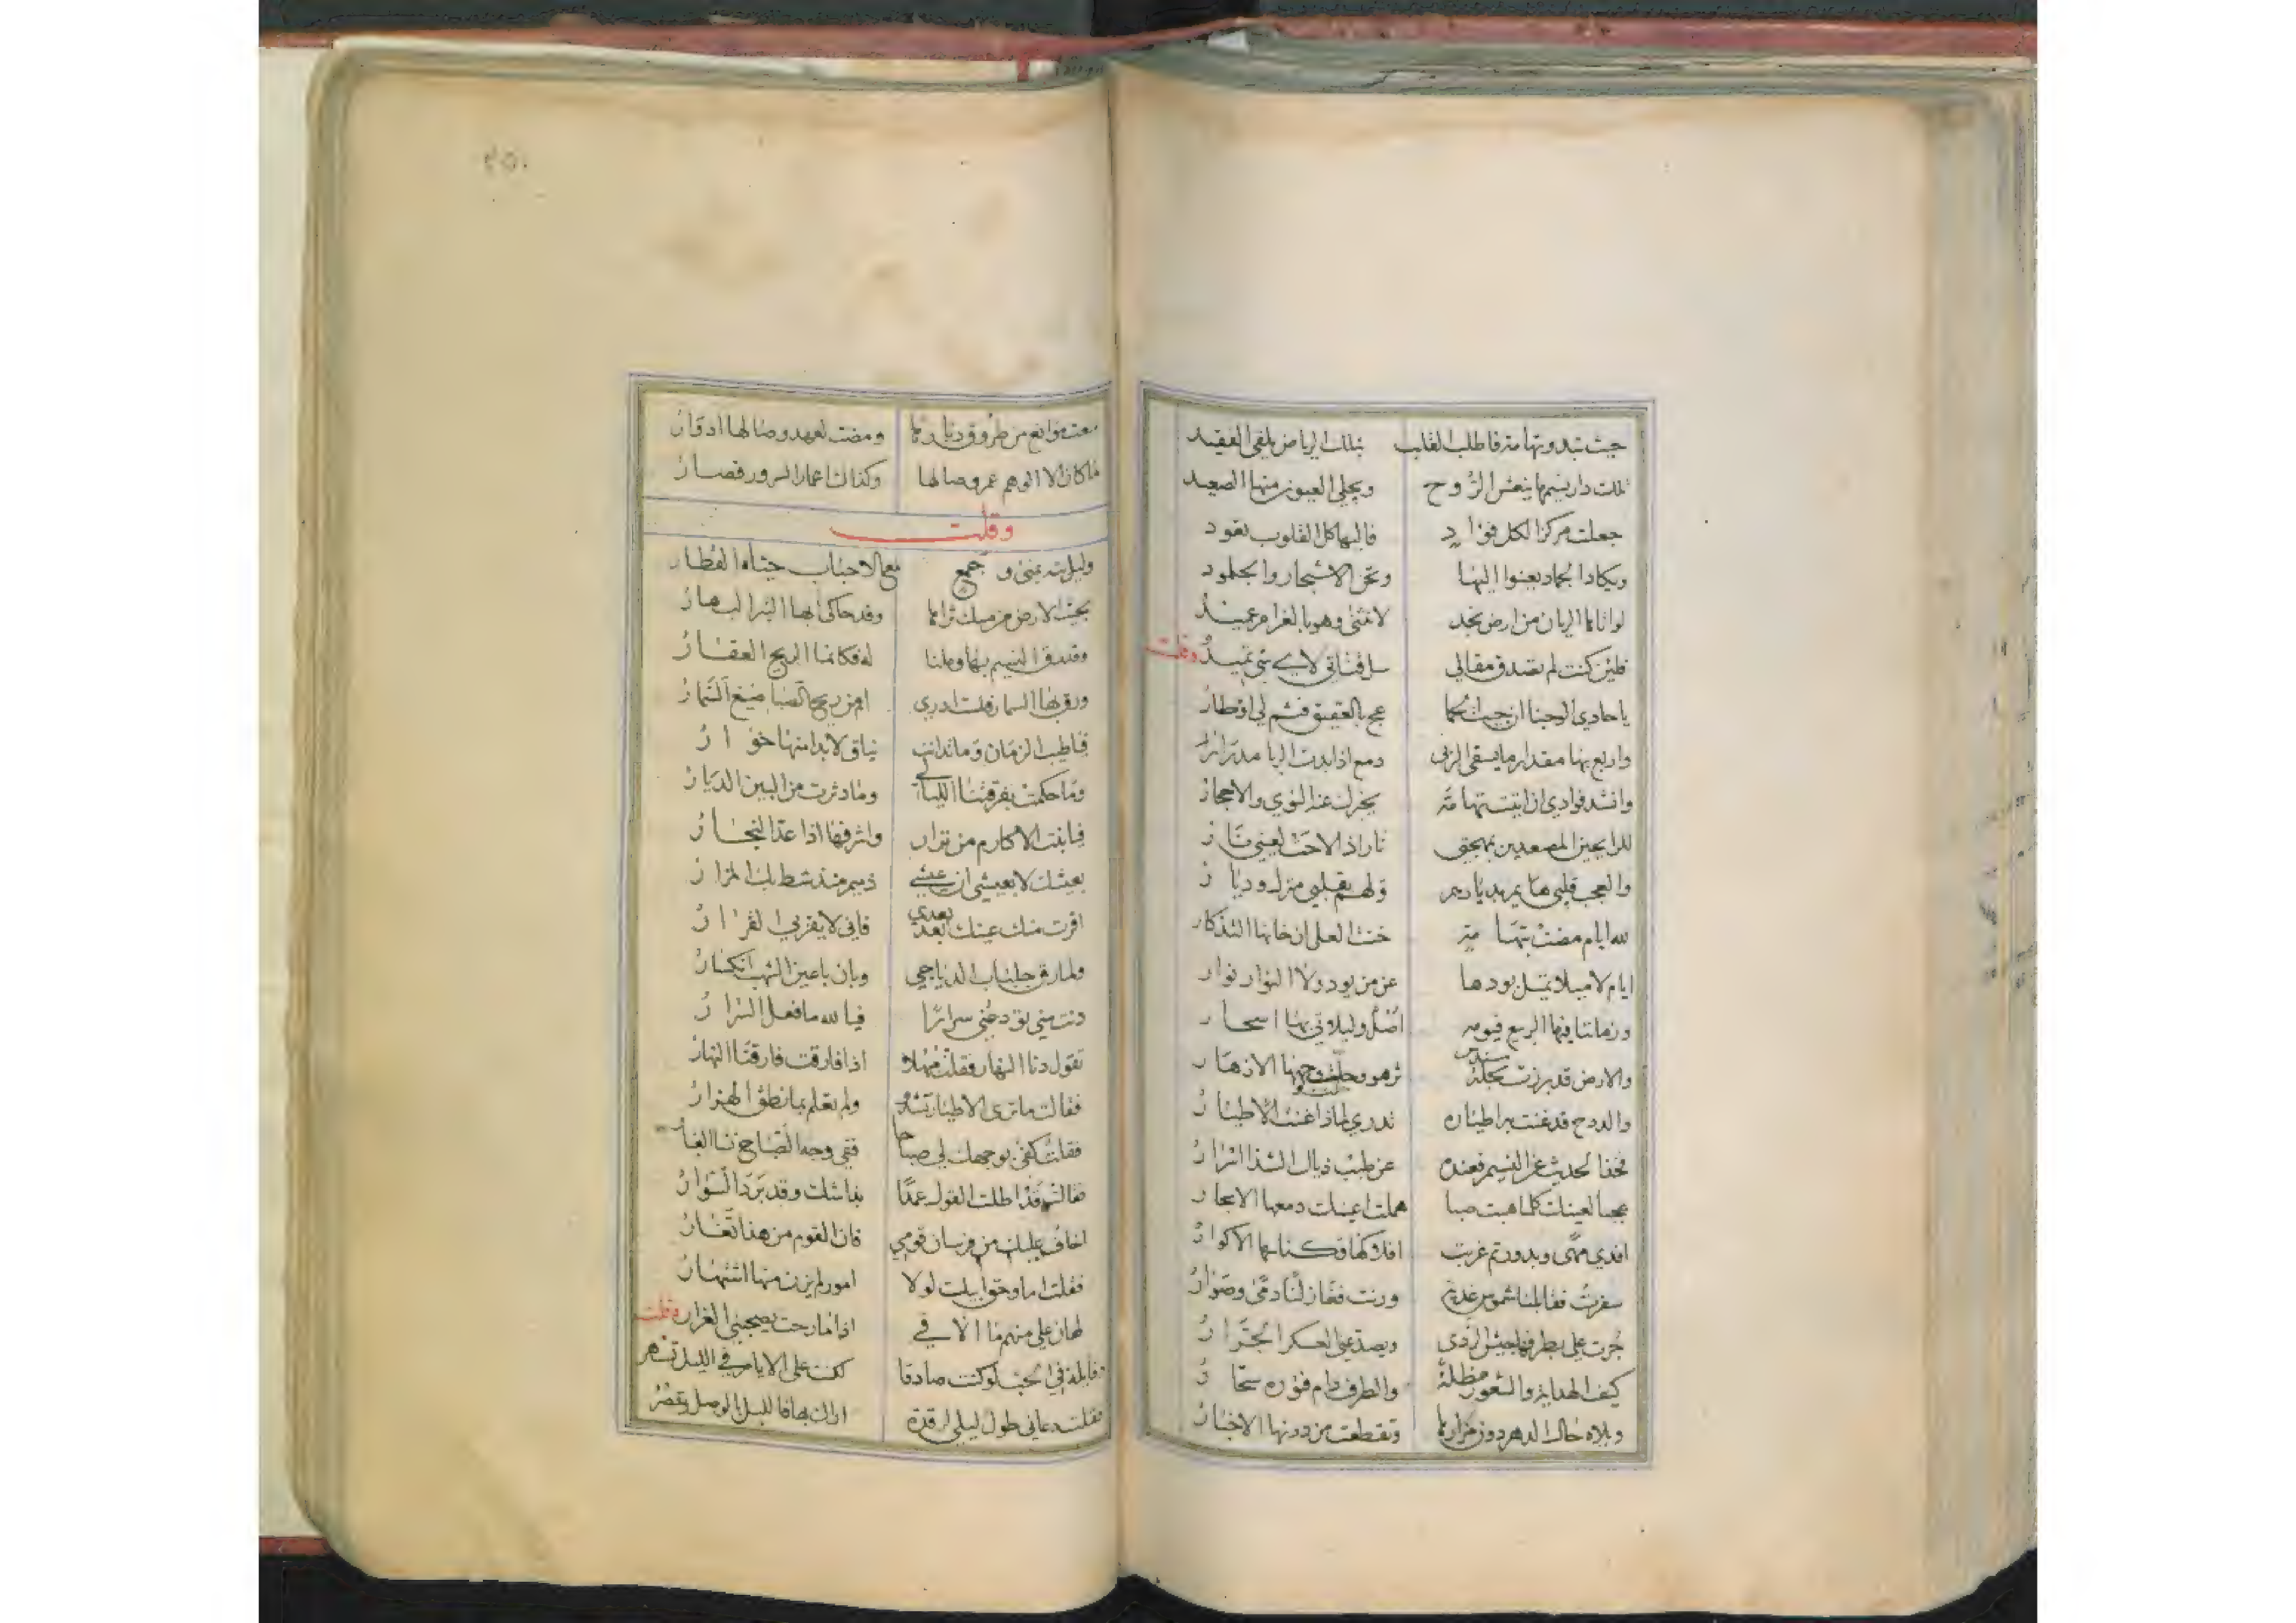 حيث تبدو بتهامة فاطلب القلب بتلك الرياض يلقى الفقيد
تلك دار نسيمها ينعش الروح ويجلي العيون منها الصعيد
جعلت مركزا لكل فؤاد فاليها كل القلوب تقود
ويكاد الجماد يعنوا اليها وتحن الاشجار والجلمود
لو اتاها الريان من ارض نجد لانثنى وهو بالغرام عميد
فلئن كنت لم تصدق مقالي سل قناتي لاي شي تميد وقلت
يا حادي الوجنا ان جيت الحما عج بالعقيق فثم لي اوطار
واربع بها مقدار ما يسقى الربى دمع اذا بدت الربا مدرار
وانشد فوادي ان اتيت تهامة يخبرك عنه النوي والاحجار
للرايحين المصعدين بمهجتي نار اذ الاحت لعيني نار
والعجب قلبي هايم بديارهم ولهم بقلبي منزل وديار
لله ايام مضت بتهامة خنت العلى ان خانها التذكار
ايام لاميلا تميل بودها عن من يود ولا النوار نوار
وزماننا فيها الربيع فيومه اصل وليلاتي بها اسحار
والارض قد برزت بحلة سندس تزهو وحلت وجهها الازهار
والدوح قد غنت به اطياره تدري لماذا غنت الاطيار
فخذ الحديث عن النسيم فعنده عن طيب ذياك الشذا اسرار
عجبا لعينك كلما هبت صبا هملت اعينك دمعها الابحار
افدي مهى وبدور تم غربت افلاكها وكناسها الاكوار
سفرت فقابلنا شموس غدية ورنت فغازلنا دمى وصوار
جرت علي بطرفها جيش الردى ويصد عني العسكر الجرار
كيف الهداية والشعور مظلة والطرف دام فوره سحار
ويلاه حال الدهر دون مزارها وتقطعت من دونها الاخبار
موانع من طروق ديارها ومضت لعهد وصالها
ما كان الا الوهم عمر وصالها وكذاك اعمار السرور قصار
وقلت
وليلة بمنى وجمع مع الاحباب
بحيث الارض من مسك ثراها وقد حاكى بها التبر البهار
وقد رق النسيم بها وملنا له فكانما الريح العقار
ورق بها السمار فلست ادري امن ريح الصبا صيغ السمار
فيا طيب الزمان وما تدانت نياق لابدا منها خوار
وما حكمت بفرقتنا الليالي وما دثرت من البين الديار
فيا بنت الاكارم من نزار واشرفها اذا عد النجار
بعيشك لا بعيشي ان عيشي ذميم منذ شط بك المزار
اقرت منك عينك بعد بعدي فاني لا يقر بي القرار
ولما رق جلباب الدياجي وبان باعين الشهب انكسار
دنت مني تودعني سرارا فيا لله ما فعل السرار
تقول دنا النهار فقلت مهلا اذا فارقت فارقنا النهار
فقالت ما ترى الاطيار تشدو ولم تعلم بما نطق الهزار
فقلت كفى بوجهك لي صباحا ففي وجه الصباح
فقالت قد اطلت القول عمدا بذا شك وقد برد السوار
اخاف عليك من فرسان قومي فان القوم من هذا تغار
فقلت اما وحق ابيك لولا امور لم يزن منها اشتهار
لهان علي منهم ما الاقي اذا ما رحت يصحبني الغرار وقلت
وقايلة في الحب لو كنت صادقا لكنت على الايام في الليل تسهر
فقلت دعاني طول ليلي لرقدة اراك بها فالليل بالوصل يقصر